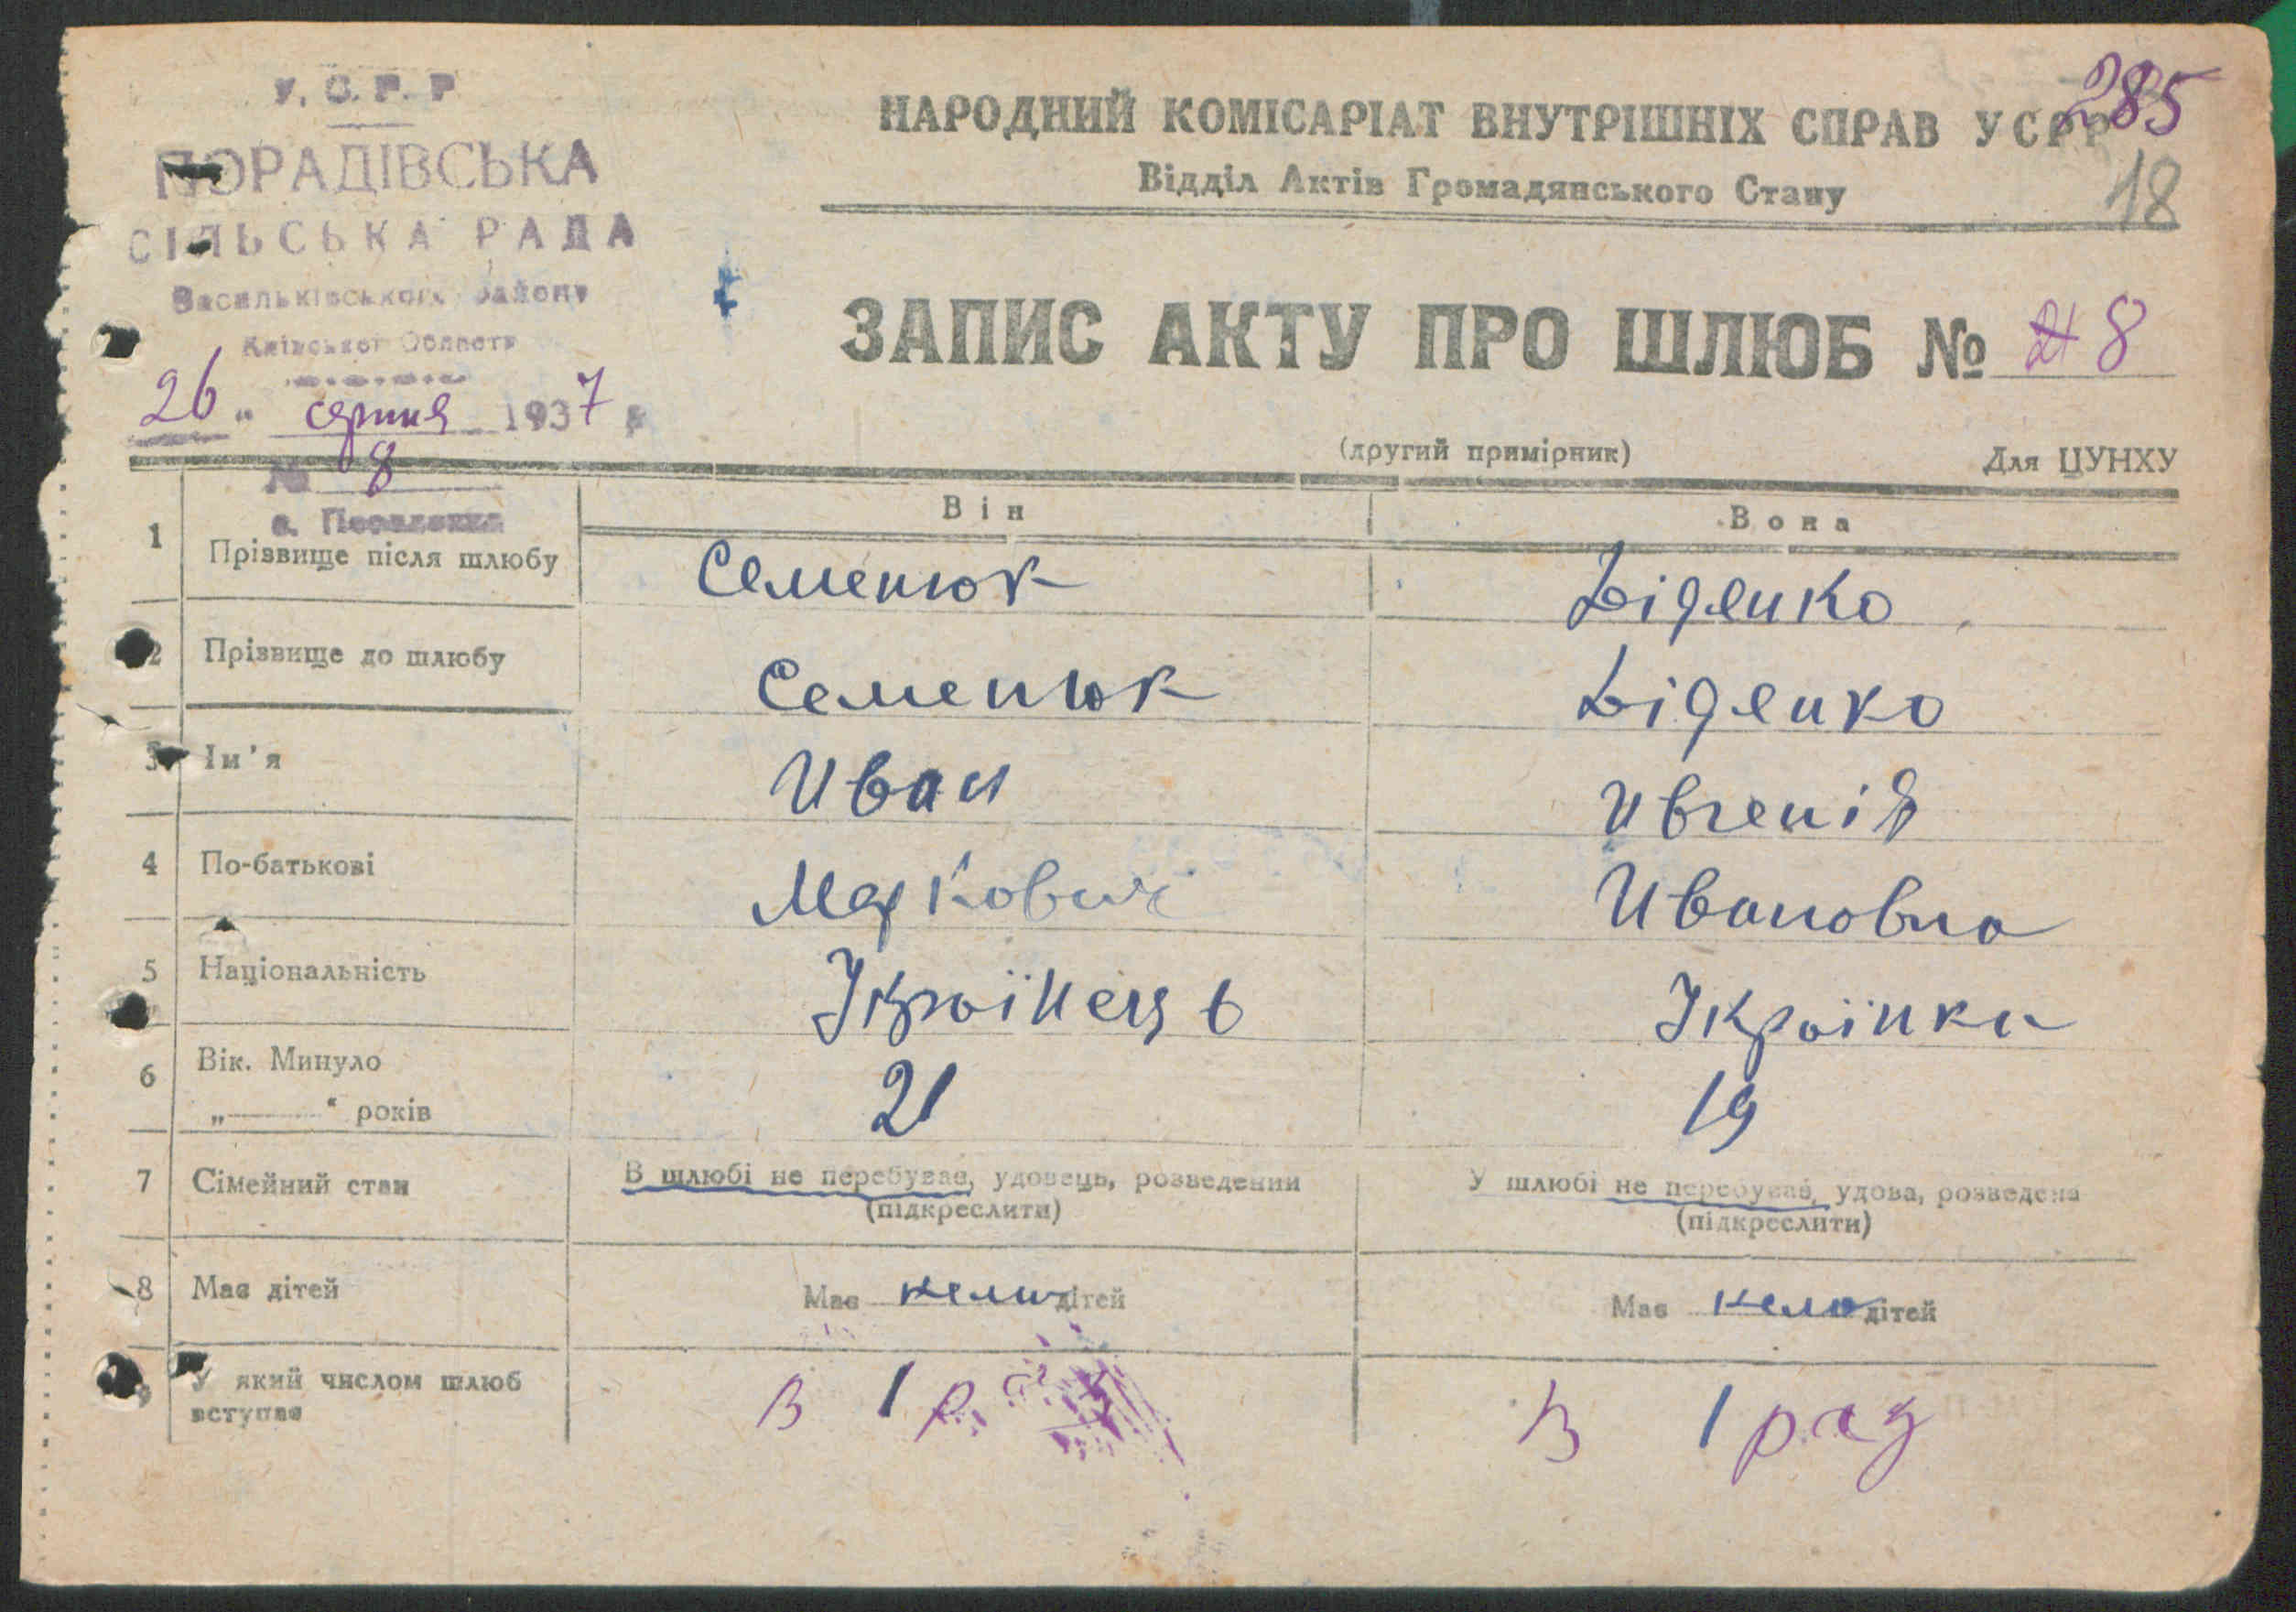 У. С. Р. Р
ПОРАДІВСЬКА
СІЛЬСЬКА РАДА
Васильківського району
Київської Області
26 " серпня 1937 р
№ 8
с. Порадівка
НАРОДНИЙ КОМІСАРІАТ ВНУТРІШНІХ СПРАВ УСРР
285
Відділ Актів Громадянського Стану
18
ЗАПИС АКТУ ПРО ШЛЮБ № 8
(другий примірник)
Для ЦУНХУ
Він
Вона
1 Прізвище після шлюбу
Семенюк
Діденко
2 Прізвище до шлюбу
Семенюк
Діденко
3 Ім'я
Иван
Ивгенія
4 По-батькові
Маркович
Ивановна
5 Національність
Українець
Українка
6 Вік. Минуло
„——“ років
21
19
7 Сімейний стан
В шлюбі не перебував, удовець, розведений
(підкреслити)
У шлюбі не перебував, удова, розведена
(підкреслити)
8 Має дітей
Має нема дітей
Має нема дітей
9 У який числом шлюб
вступає
в 1 раз
в 1 раз